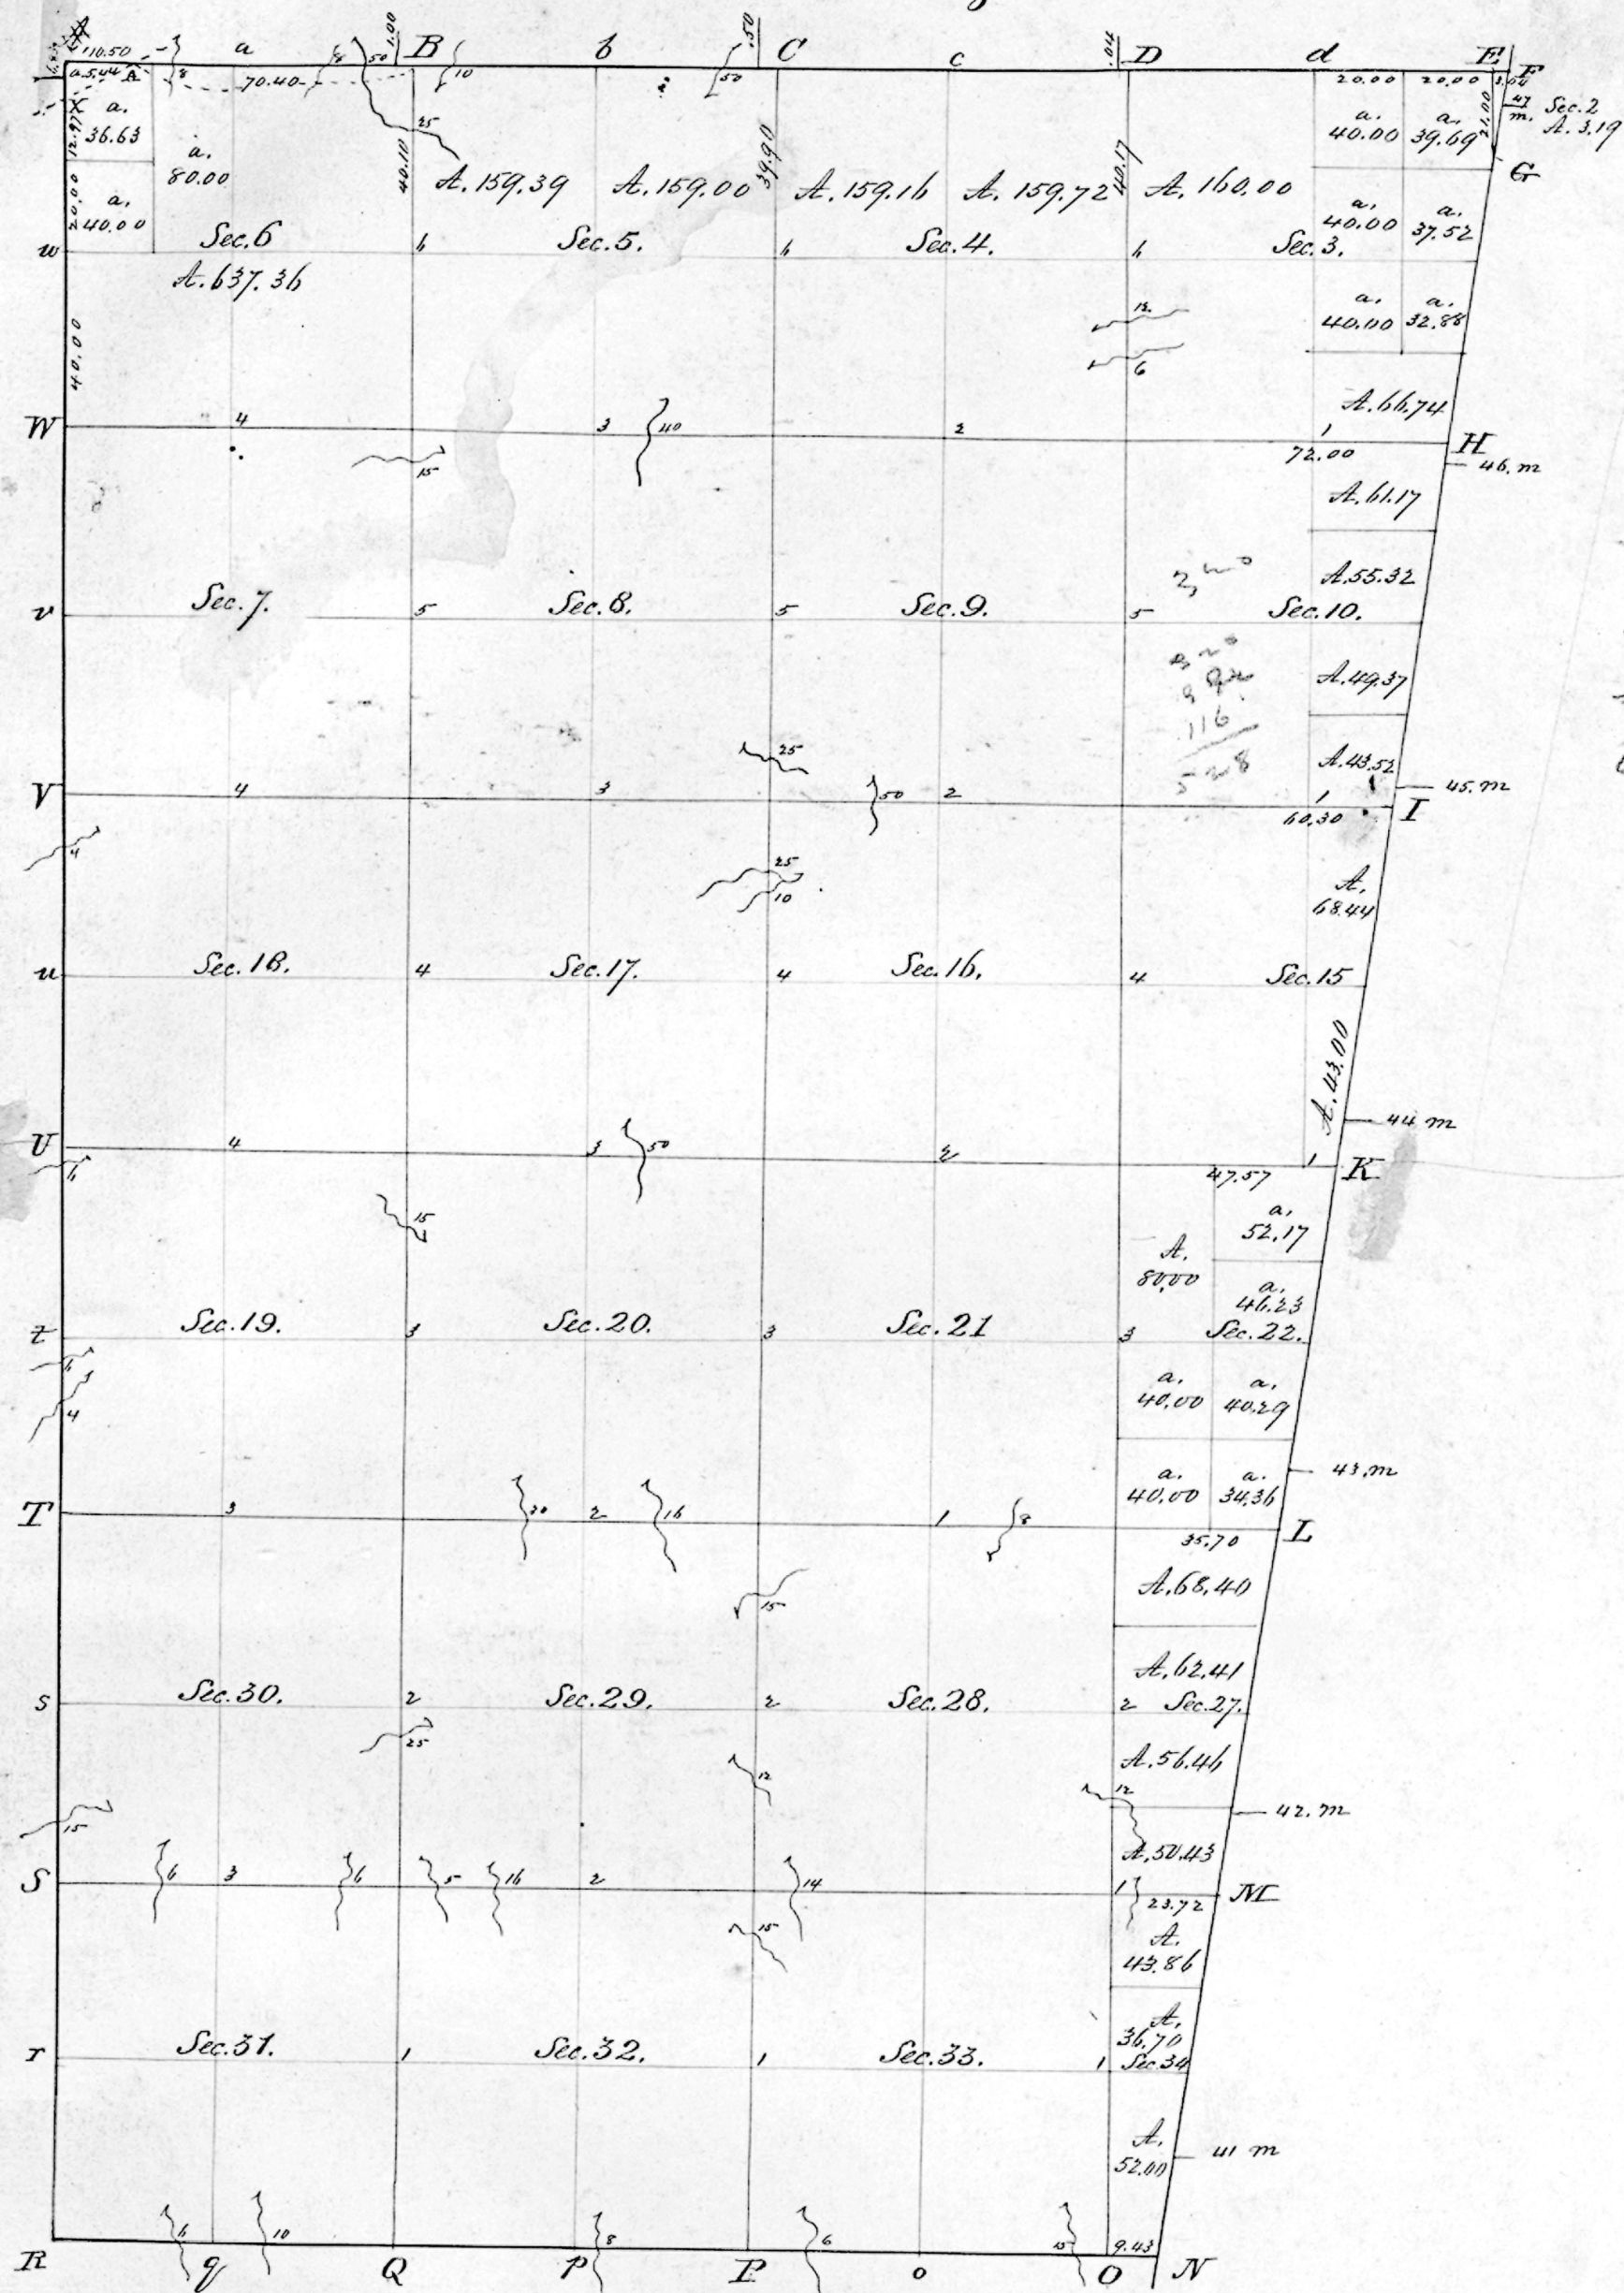 10.50 a 50 1.00 B b .50 C c .04 D d E F
a. 5.44 A 8 70.40 8 10 50 20.00 20.00 3.04
47 m. Sec. 2
A. 3.19
X a. 36.63
12.97
a. 80.00
25
40.10
39.90
40.17
a. 40.00
a. 39.69
21.00
G
A. 159.39 A. 159.00 A. 159.16 A. 159.72 A. 160.00
20.00
a. 40.00
a. 40.00
a. 37.52
w Sec. 6 6 Sec. 5. 6 Sec. 4. 6 Sec. 3.
A. 637.36
40.00
12
6
a. 40.00
a. 32.88
A. 66.74
W 4 3 40 2 1 H
72.00
46. m
15
A. 61.17
A. 55.32
v Sec. 7. 5 Sec. 8. 5 Sec. 9. 5 Sec. 10.
116
A. 49.37
25
A. 43.52
45. m
V 4 3 50 2 1 I
60.30
4
25
10
A. 68.44
u Sec. 18. 4 Sec. 17. 4 Sec. 16. 4 Sec. 15
A. 43.00
44 m
U 4 3 50 2 1 K
6
47.57
15
a. 52.17
A. 80.00
a. 46.23
t Sec. 19. 3 Sec. 20. 3 Sec. 21 3 Sec. 22.
6
4
a. 40.00
a. 40.29
43. m
a. 40.00
a. 34.36
T 3 20 2 16 1 8 L
35.70
15
A. 68.40
A. 62.41
s Sec. 30. 2 Sec. 29. 2 Sec. 28. 2 Sec. 27.
25
12
A. 56.46
12
42. m
15
A. 50.43
S 6 3 6 5 16 2 14 1 M
23.72
15
A. 43.86
A. 36.70
r Sec. 31. 1 Sec. 32. 1 Sec. 33. 1 Sec. 34
A. 52.00
41 m
6 10 8 6 15 9.43
R q Q p P o O N